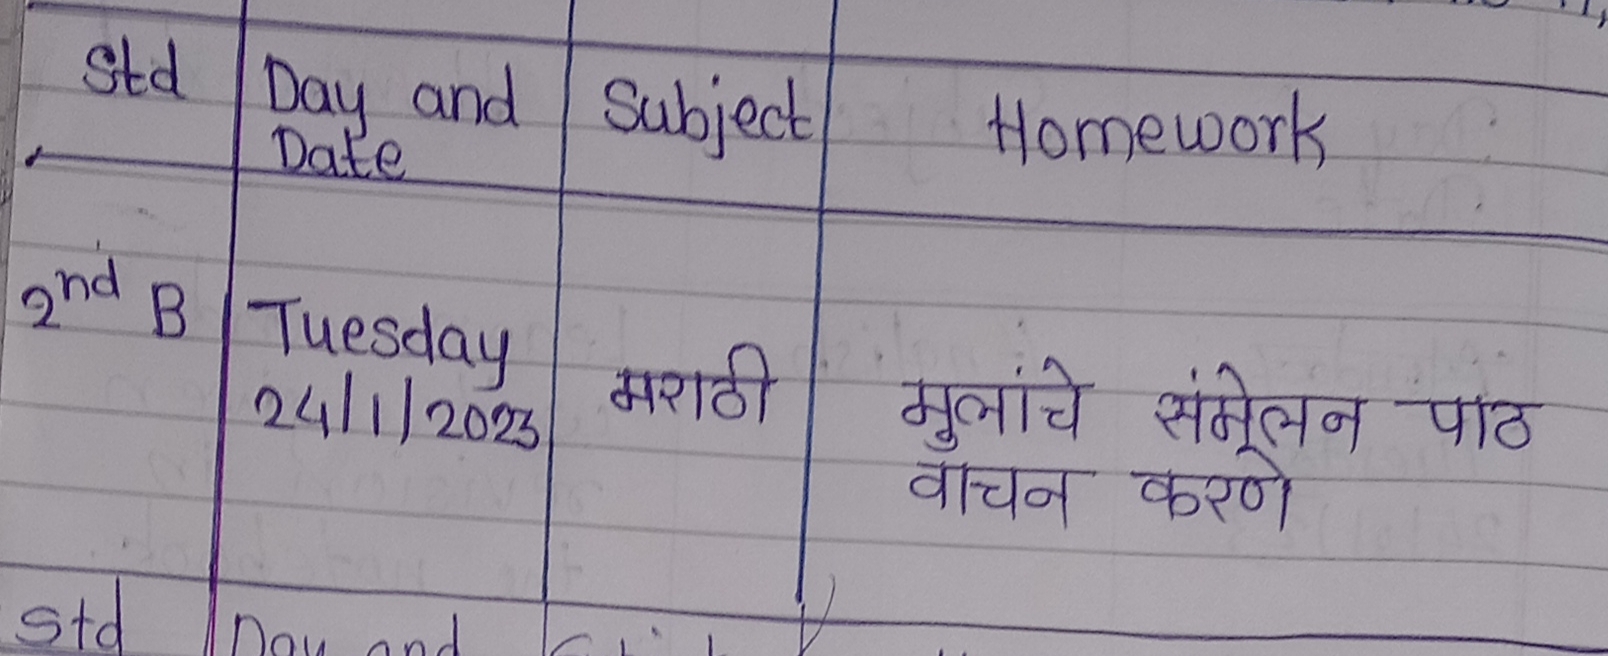 Std Day and Subject Homework
Date
2nd B Tuesday
24/1/2023 मराठी मुलांचे संमेलन पाठ
वाचन करणे
Std Day and